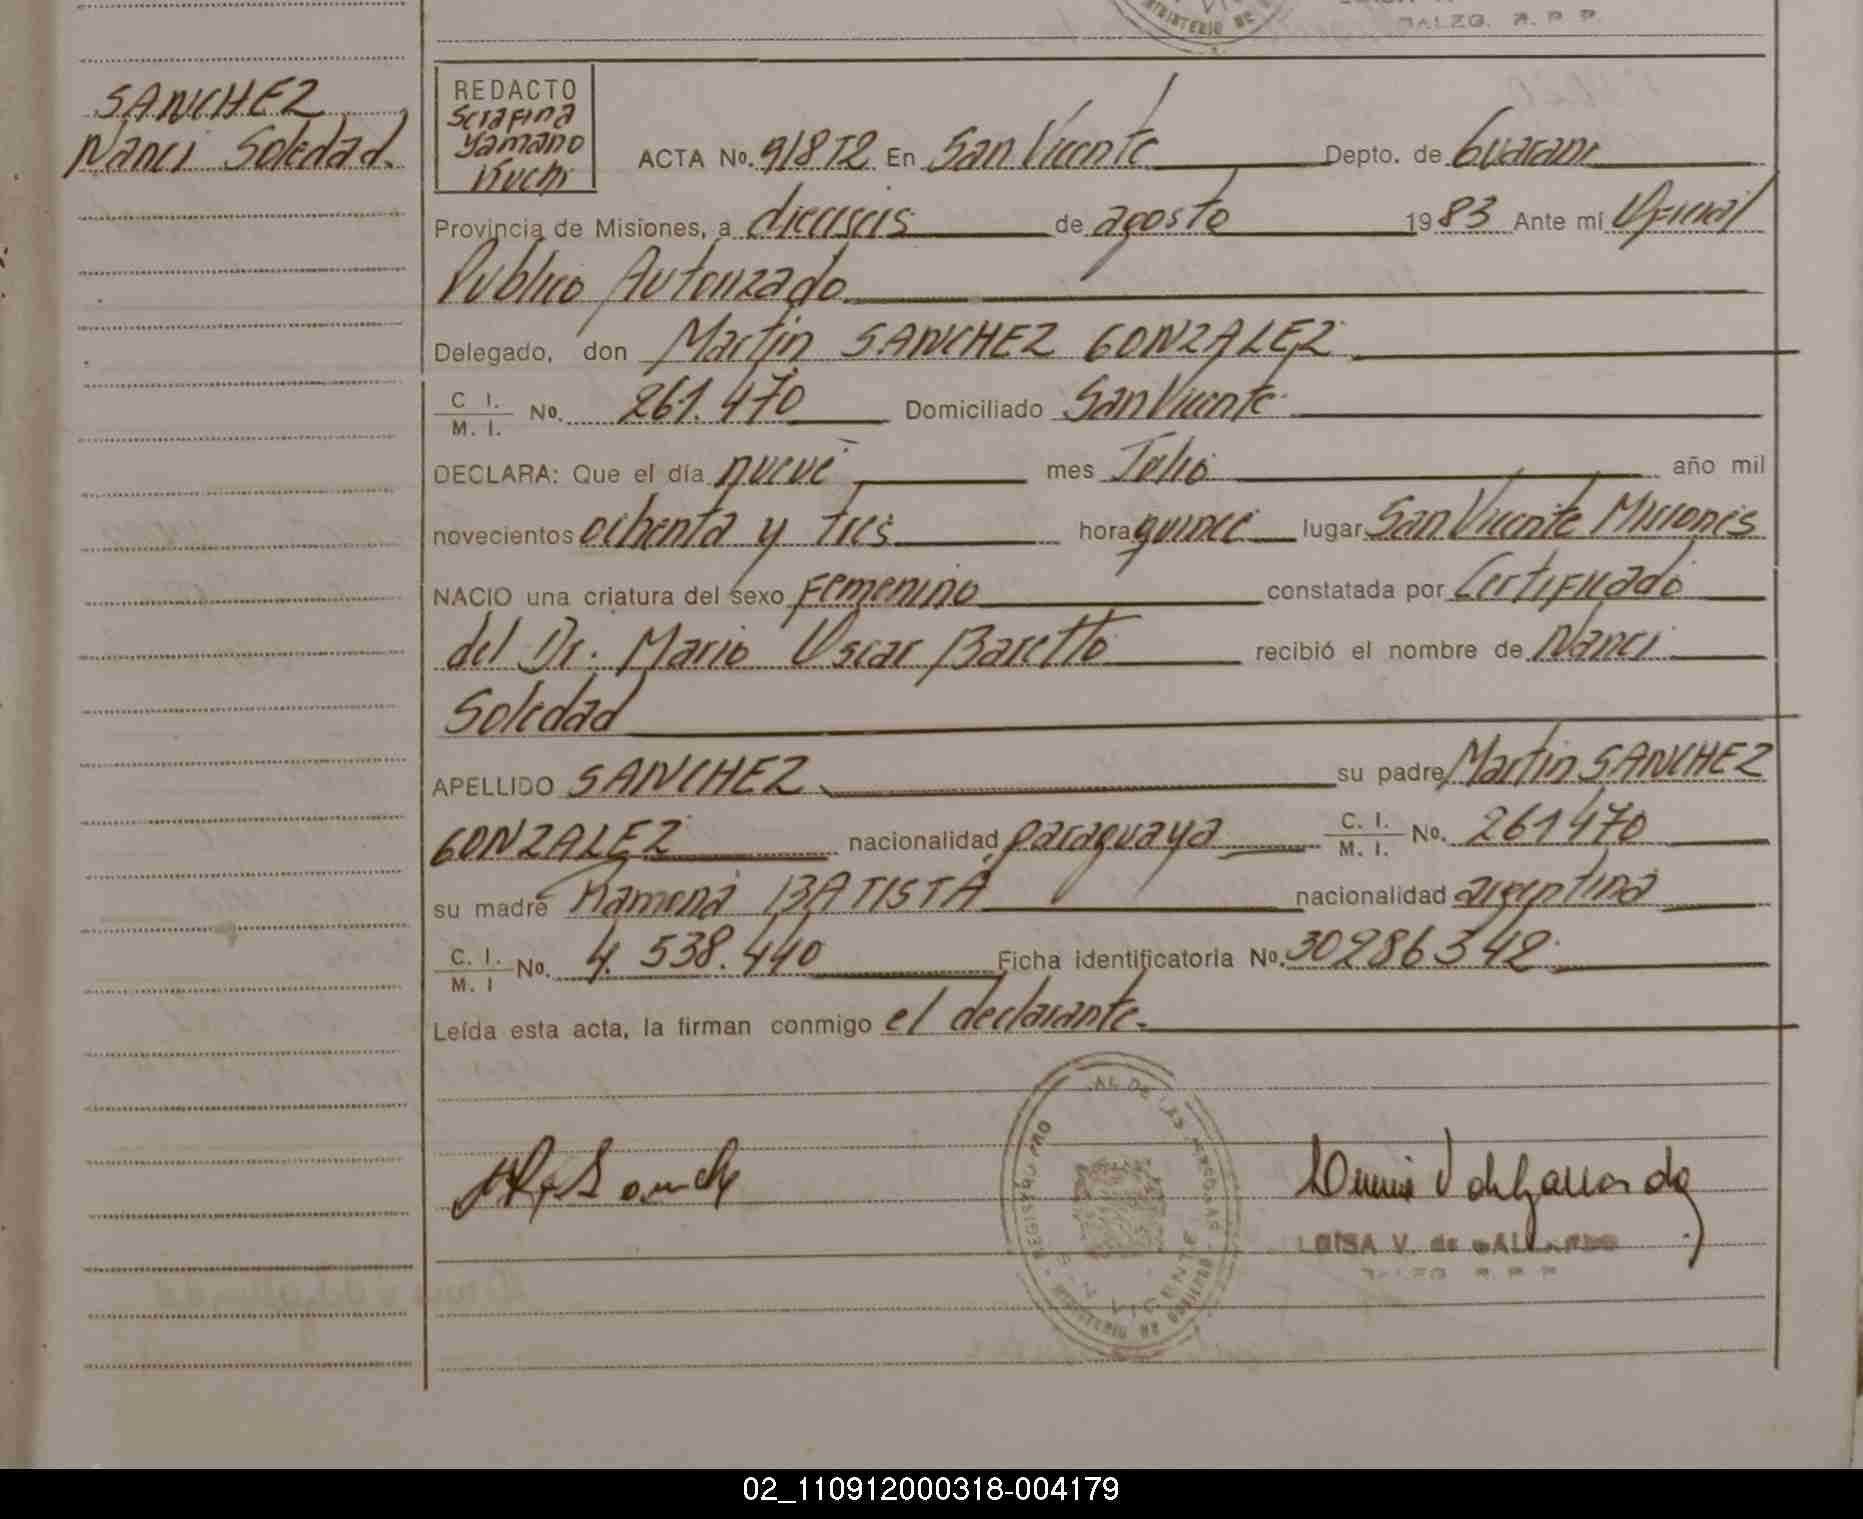 MINISTERIO DE
DALEG. R. P. P.
SANCHEZ
Nanci Soledad.
REDACTO
Serafina
Yamano
Kuchi
ACTA No. 918T2 En San Vicente Depto. de Guarani
Provincia de Misiones, a dieciseis de agosto 1983 Ante mí Oficial
Publico Autorizado
Delegado, don Martin SANCHEZ GONZALEZ
C I.
M. I. No. 261.470 Domiciliado San Vicente
DECLARA: Que el día nueve mes Julio año mil
novecientos ochenta y tres hora quince lugar San Vicente Misiones
NACIO una criatura del sexo Femenino constatada por Certificado
del Dr. Mario Oscar Baretto recibió el nombre de Nanci
Soledad
APELLIDO SANCHEZ su padre Martin SANCHEZ
GONZALEZ nacionalidad paraguaya C. I. M. I. No. 261470
su madre Ramona BATISTA nacionalidad argentina
C. I. M. I No. 4.538.440 Ficha identificatoria No. 30286342
Leída esta acta, la firman conmigo el declarante.
LUISA V. de GALLARDO
02_110912000318-004179